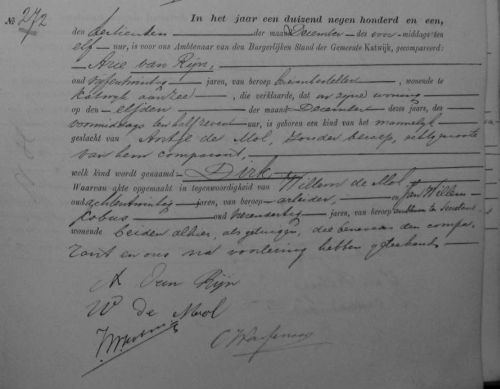 No 272
In het jaar een duizend negen honderd en een,
den dertienden der maand December des voor-middags ten
elf - ure, is voor ons Ambtenaar van den Burgerlijken Stand der Gemeente Katwijk, gecompareerd:
Arie van Rijn,
oud jaren, van beroep wonende te
Katwijk aan zee, die verklaarde, dat in zijne woning
op den elfden der maand December dezes jaars, des
voormiddags ten half zeven ure, is geboren een kind van het mannelijk
geslacht van Antje de Mol, zonder beroep, echtgenoote
van hem comparant,
welk kind wordt genaamd Dirk
Waarvan akte opgemaakt in tegenwoordigheid van Willem de Mol
oud achtentwintig jaren, van beroep arbeider, en Jan Willem
Kobus oud jaren, van beroep
wonende beiden alhier, als getuigen, die benevens den compa-
rant en ons na voorlezing hebben geteekend.
A van Rijn
W de Mol